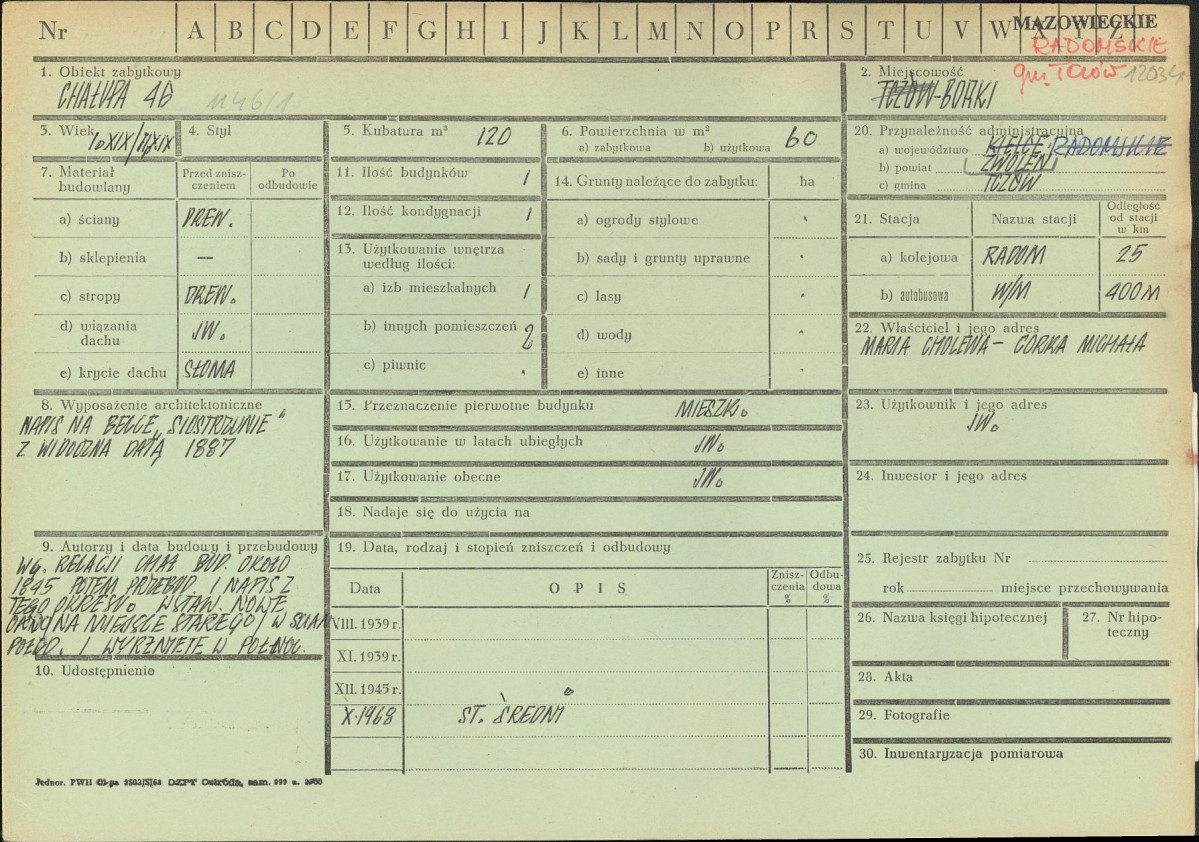 Nr A B C D E F G H I J K L M N O P R S T U V W X Y Z
MAZOWIECKIE
RADOMSKIE
gm. Tczów
1. Obiekt zabytkowy
CHAŁUPA 46
2. Miejscowość
TCZÓW-BORKI
3. Wiek
4. Styl
5. Kubatura m³ 120
6. Powierzchnia w m²
a) zabytkowa b) użytkowa
60
7. Materiał budowlany
Przed zniszczeniem
Po odbudowie
a) ściany DREW.
b) sklepienia —
c) stropy DREW.
d) wiązania dachu JW.
e) krycie dachu SŁOMA
8. Wyposażenie architektoniczne
NAPIS NA BELCE „SIOSTRZANIE"
Z WIDOCZNĄ DATĄ 1887
9. Autorzy i data budowy i przebudowy
WG. RELACJI CHAŁ BUD. OKOŁO
1845 POTEM PRZEBUD. I NAPIS Z
TEGO OKRESU. WSTAW. NOWE
OKNO/NA MIEJSCE STAREGO/ W ŚCIAN
POŁUD. I WYRZNIĘTE W PÓŁNOC.
10. Udostępnienie
11. Ilość budynków 1
12. Ilość kondygnacji 1
13. Użytkowanie wnętrza
według ilości:
a) izb mieszkalnych 1
b) innych pomieszczeń 2
c) piwnic .
14. Grunty należące do zabytku: ha
a) ogrody stylowe
b) sady i grunty uprawne
c) lasy
d) wody
e) inne
15. Przeznaczenie pierwotne budynku MIESZK.
16. Użytkowanie w latach ubiegłych JW.
17. Użytkowanie obecne JW.
18. Nadaje się do użycia na
19. Data, rodzaj i stopień zniszczeń i odbudowy
Data
OPIS
Zniszczenia %
Odbudowa %
VIII. 1939 r.
XI. 1939 r.
XII. 1945 r.
X.1968 ST. ŚREDNI
20. Przynależność administracyjna
a) województwo KIELCE RADOMSKIE
b) powiat ZWOLEŃ
c) gmina TCZÓW
21. Stacja
Nazwa stacji
Odległość od stacji w km
a) kolejowa RADOM 25
b) autobusowa W/M 400 M
22. Właściciel i jego adres
MARIA CHOLEWA – CÓRKA MICHAŁA
23. Użytkownik i jego adres
JW.
24. Inwestor i jego adres
25. Rejestr zabytku Nr
rok miejsce przechowywania
26. Nazwa księgi hipotecznej
27. Nr hipoteczny
28. Akta
29. Fotografie
30. Inwentaryzacja pomiarowa